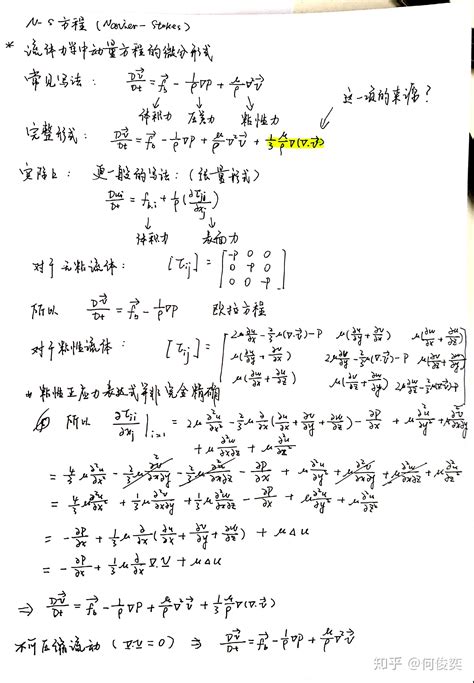 N-S 方程 (Navier-Stokes)
* 流体力学中动量方程的微分形式
常见写法: Dv⃗/Dt = f⃗b - 1/ρ ∇P + μ/ρ ∇²v⃗
体积力 压差力 粘性力 这一项的来源?
完整形式: Dv⃗/Dt = f⃗b - 1/ρ ∇P + μ/ρ ∇²v⃗ + 1/3 μ/ρ ∇(∇·v⃗)
实际上 更一般的写法: (张量形式)
Dui/Dt = fb,i + 1/ρ (∂τji/∂xj)
体积力 表面力
对于无粘流体: [τij] = [-P 0 0
0 -P 0
0 0 -P]
所以 Dv⃗/Dt = f⃗b - 1/ρ ∇P 欧拉方程
对于粘性流体: [τij] = [2μ ∂u/∂x - 2/3 μ(∇·v⃗) - P μ(∂u/∂y + ∂v/∂x) μ(∂u/∂z + ∂w/∂x)
μ(∂u/∂y + ∂v/∂x) 2μ ∂v/∂y - 2/3 μ(∇·v⃗) - P μ(∂v/∂z + ∂w/∂y)
μ(∂u/∂z + ∂w/∂x) μ(∂v/∂z + ∂w/∂y) 2μ ∂w/∂z - 2/3 μ(∇·v⃗) - P]
* 粘性正应力表达式并非完全精确
所以 ∂τji/∂xj |i=1 = 2μ ∂²u/∂x² - 2/3 μ ∂/∂x (∂u/∂x + ∂v/∂y + ∂w/∂z) - ∂P/∂x + μ ∂²u/∂y² + μ ∂²v/∂x∂y
+ μ ∂²w/∂x∂z + μ ∂²u/∂z²
= 4/3 μ ∂²u/∂x² - 2/3 μ ∂²v/∂x∂y - 2/3 μ ∂²w/∂x∂z - ∂P/∂x + μ ∂²u/∂y² + μ ∂²v/∂x∂y + μ ∂²w/∂x∂z + μ ∂²u/∂z²
= 4/3 μ ∂²u/∂x² + 1/3 μ ∂²v/∂x∂y + 1/3 μ ∂²w/∂x∂z - ∂P/∂x + μ ∂²u/∂y² + μ ∂²u/∂z²
= -∂P/∂x + 1/3 μ ∂/∂x (∂u/∂x + ∂v/∂y + ∂w/∂z) + μ△u
= -∂P/∂x + 1/3 μ ∂/∂x ∇·v⃗ + μ△u
⇒ Dv⃗/Dt = f⃗b - 1/ρ ∇P + μ/ρ ∇²v⃗ + 1/3 μ/ρ ∇(∇·v⃗)
不可压缩流动 (∇·v⃗ = 0) ⇒ Dv⃗/Dt = f⃗b - 1/ρ ∇P + μ/ρ ∇²v⃗
知乎 @何俊奕